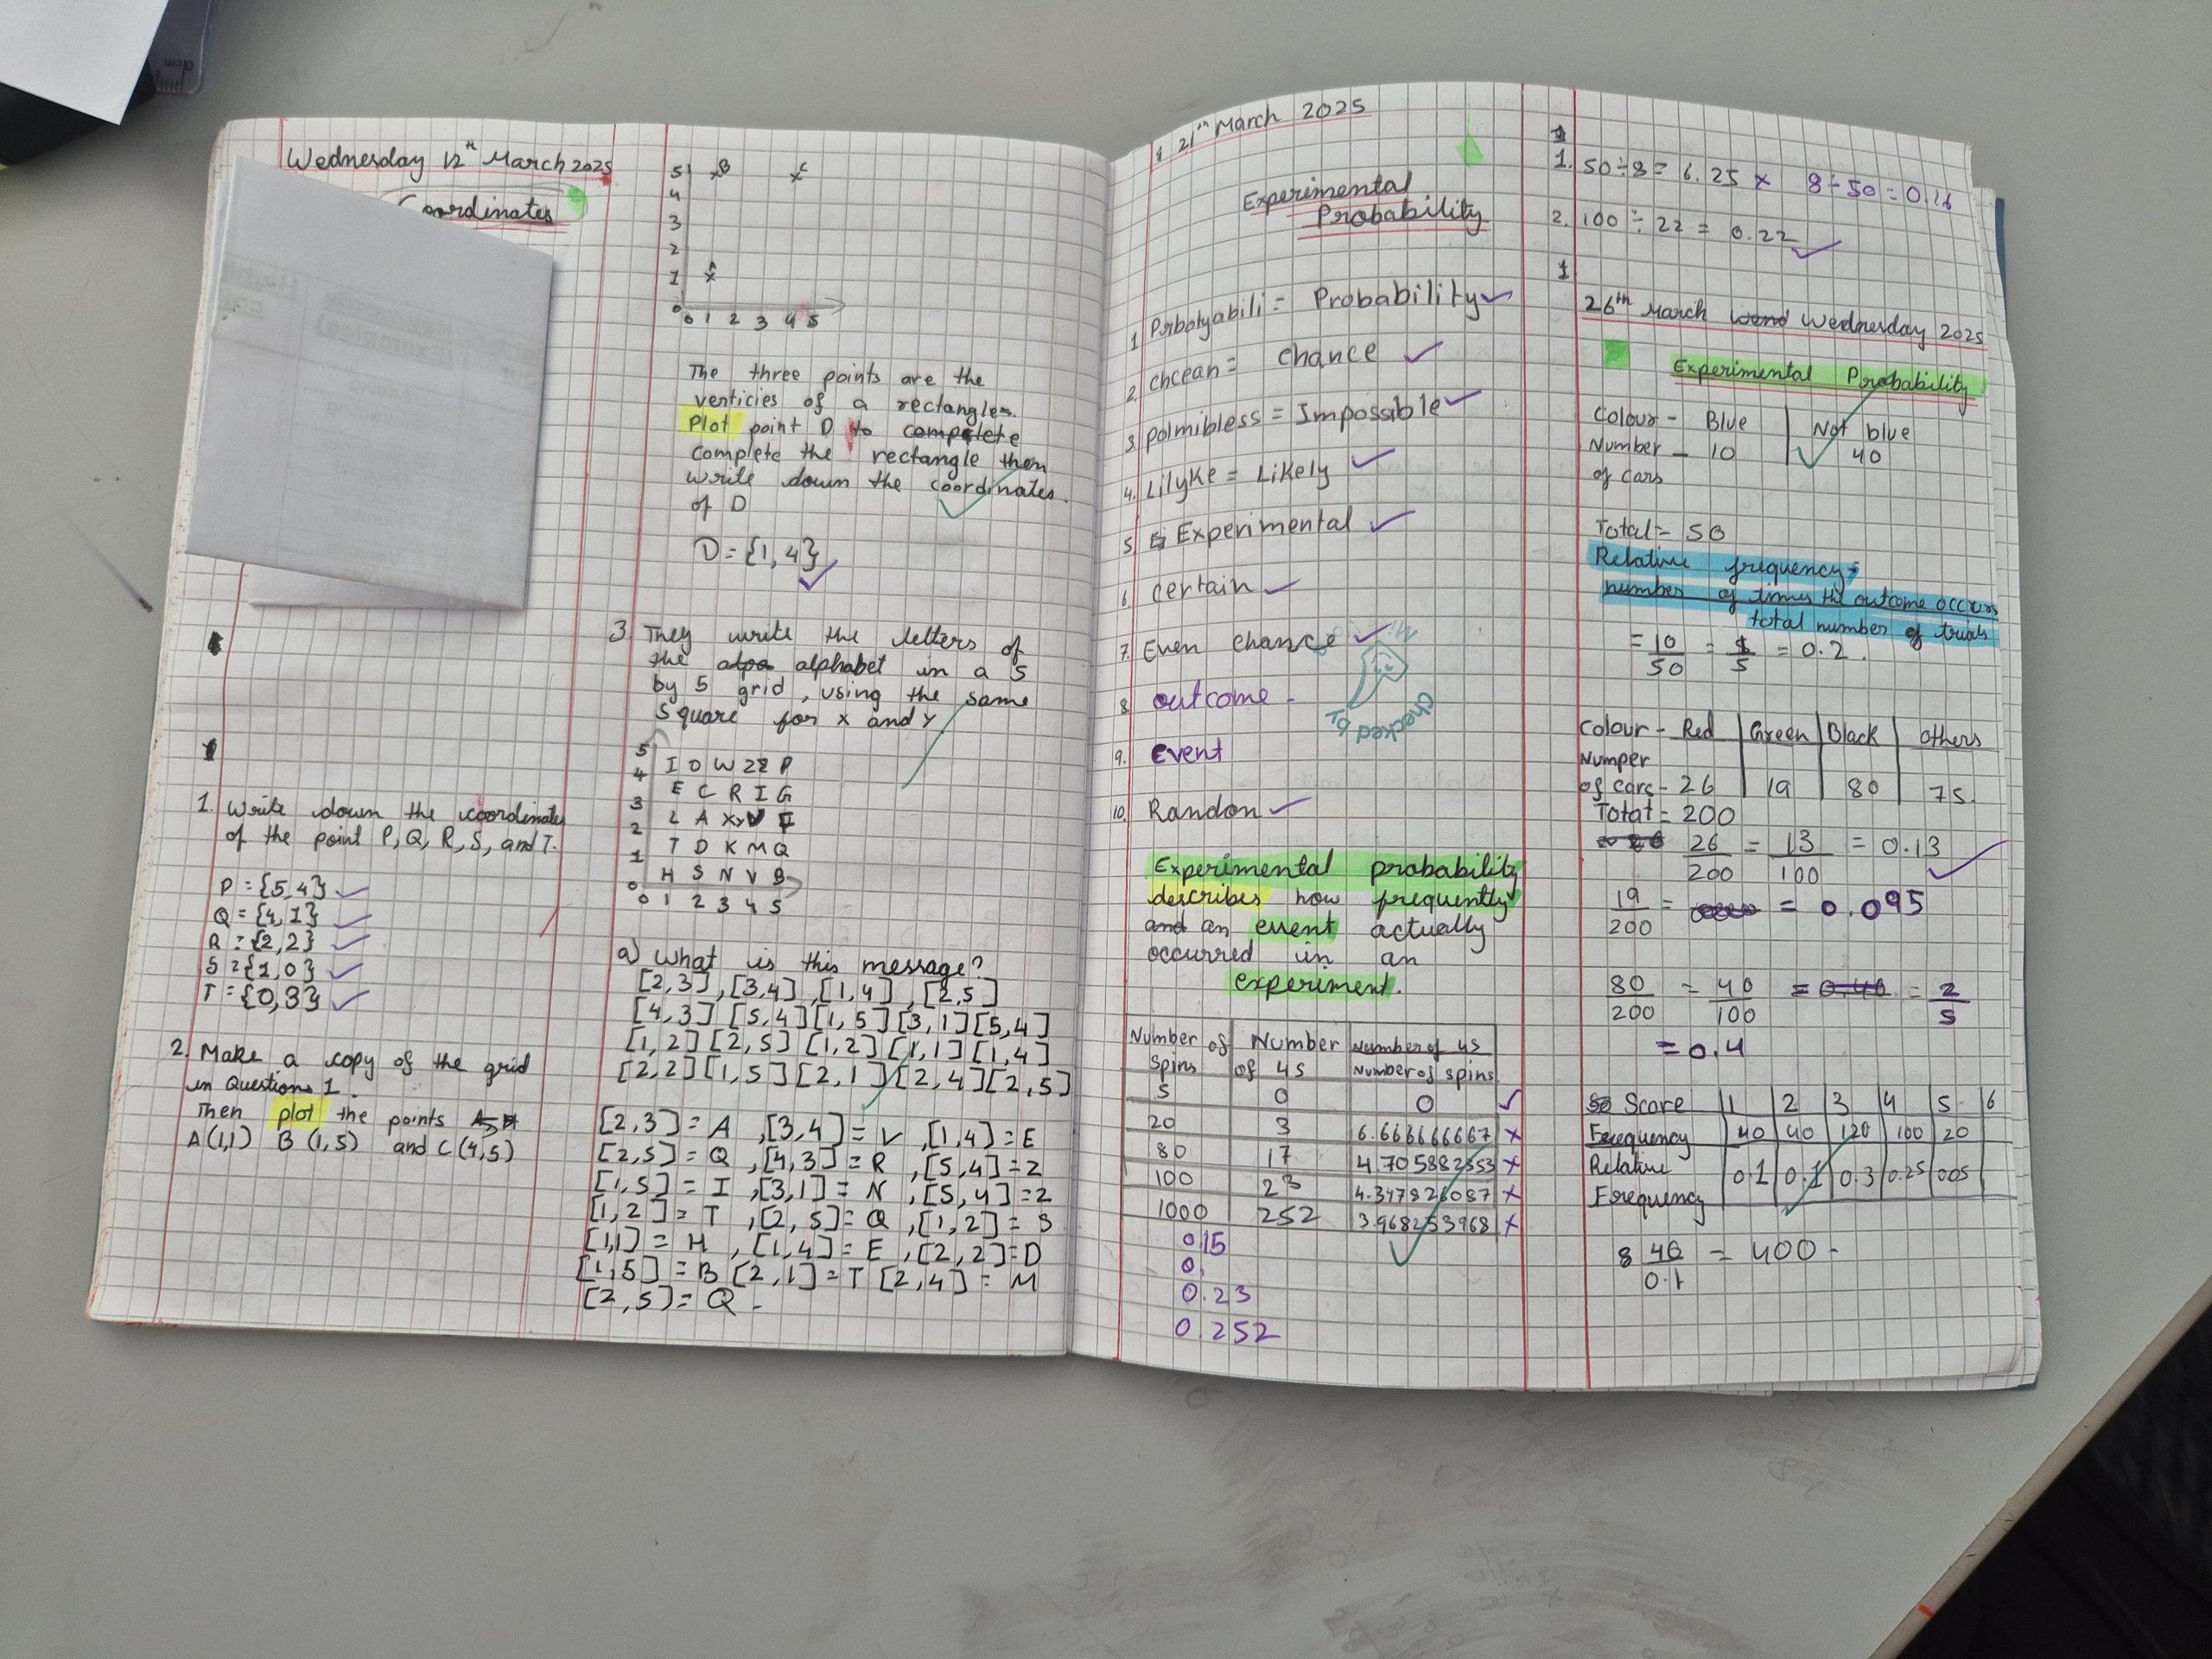 Wednesday 12th March 2025
Coordinates
1. Write down the coordinates
of the point P, Q, R, S, and T.
P = {5,4}
Q = {4,1}
R = {2,2}
S = {1,0}
T = {0,3}
2. Make a copy of the grid
in Questions 1.
Then plot the points
A(1,1) B (1,5) and C(4,5)
5 B C
4
3
2
1 A
0
0 1 2 3 4 5
The three points are the
verticies of a rectangles.
Plot point D to complete
complete the rectangle then
write down the coordinates.
of D
D = {1,4}
3. They write the letters of
the alpa alphabet in a 5
by 5 grid, using the same
Square for x and y
5
I O W 2 P
4
E C R I G
3
L A X Y V F
2
T D K M Q
1
H S N V B
0
0 1 2 3 4 5
a) What is this message?
[2,3], [3,4], [1,4], [2,5]
[4,3] [5,4] [1,5] [3,1] [5,4]
[1,2] [2,5] [1,2] [1,1] [1,4]
[2,2] [1,5] [2,1] [2,4] [2,5]
[2,3] = A, [3,4] = V, [1,4] = E
[2,5] = Q, [4,3] = R, [5,4] = 2
[1,5] = I, [3,1] = N, [5,4] = 2
[1,2] = T, [2,5] = Q, [1,2] = 3
[1,1] = H, [1,4] = E, [2,2] = D
[1,5] = B [2,1] = T [2,4] = M
[2,5] = Q -
21th March 2025
Experimental
Probability
1 Prbotyabili = Probability
2. chcean = chance
3. polmibless = Impossible
4. Lilyke = Likely
5 Experimental
6. certain
7. Even chance
8. outcome -
9. Event
10. Random
checked by
Experimental probability
describes how frequently
and an event actually
occurred in an
experiment.
Number of spins Number of 4s Number of 4s Number of spins
5 0 0
20 3 6.666666667 x
80 17 4.705882353 x
100 23 4.347826087 x
1000 252 3.968253968 x
0.15
0.
0.23
0.252
1. 50÷8 = 6.25 x 8÷50 = 0.16
2. 100÷22 = 0.22
1
26th March Wednesday 2025
Experimental Probability
Colour - Blue Not blue
Number - 10 40
of cars
Total = 50
Relative frequency =
number of times the outcome occurs
total number of trials
= 10/50 = 1/5 = 0.2.
Colour - Red Green Black Others
Numper
of cars - 26 19 80 75.
Total = 200
26/200 = 13/100 = 0.13
19/200 = = 0.095
80/200 = 40/100 = 0.40 = 2/5
= 0.4
Score 1 2 3 4 5 6
Frequency 40 40 120 100 20
Relative
Frequency 0.1 0.1 0.3 0.25 0.05
8 40/0.1 = 400 -